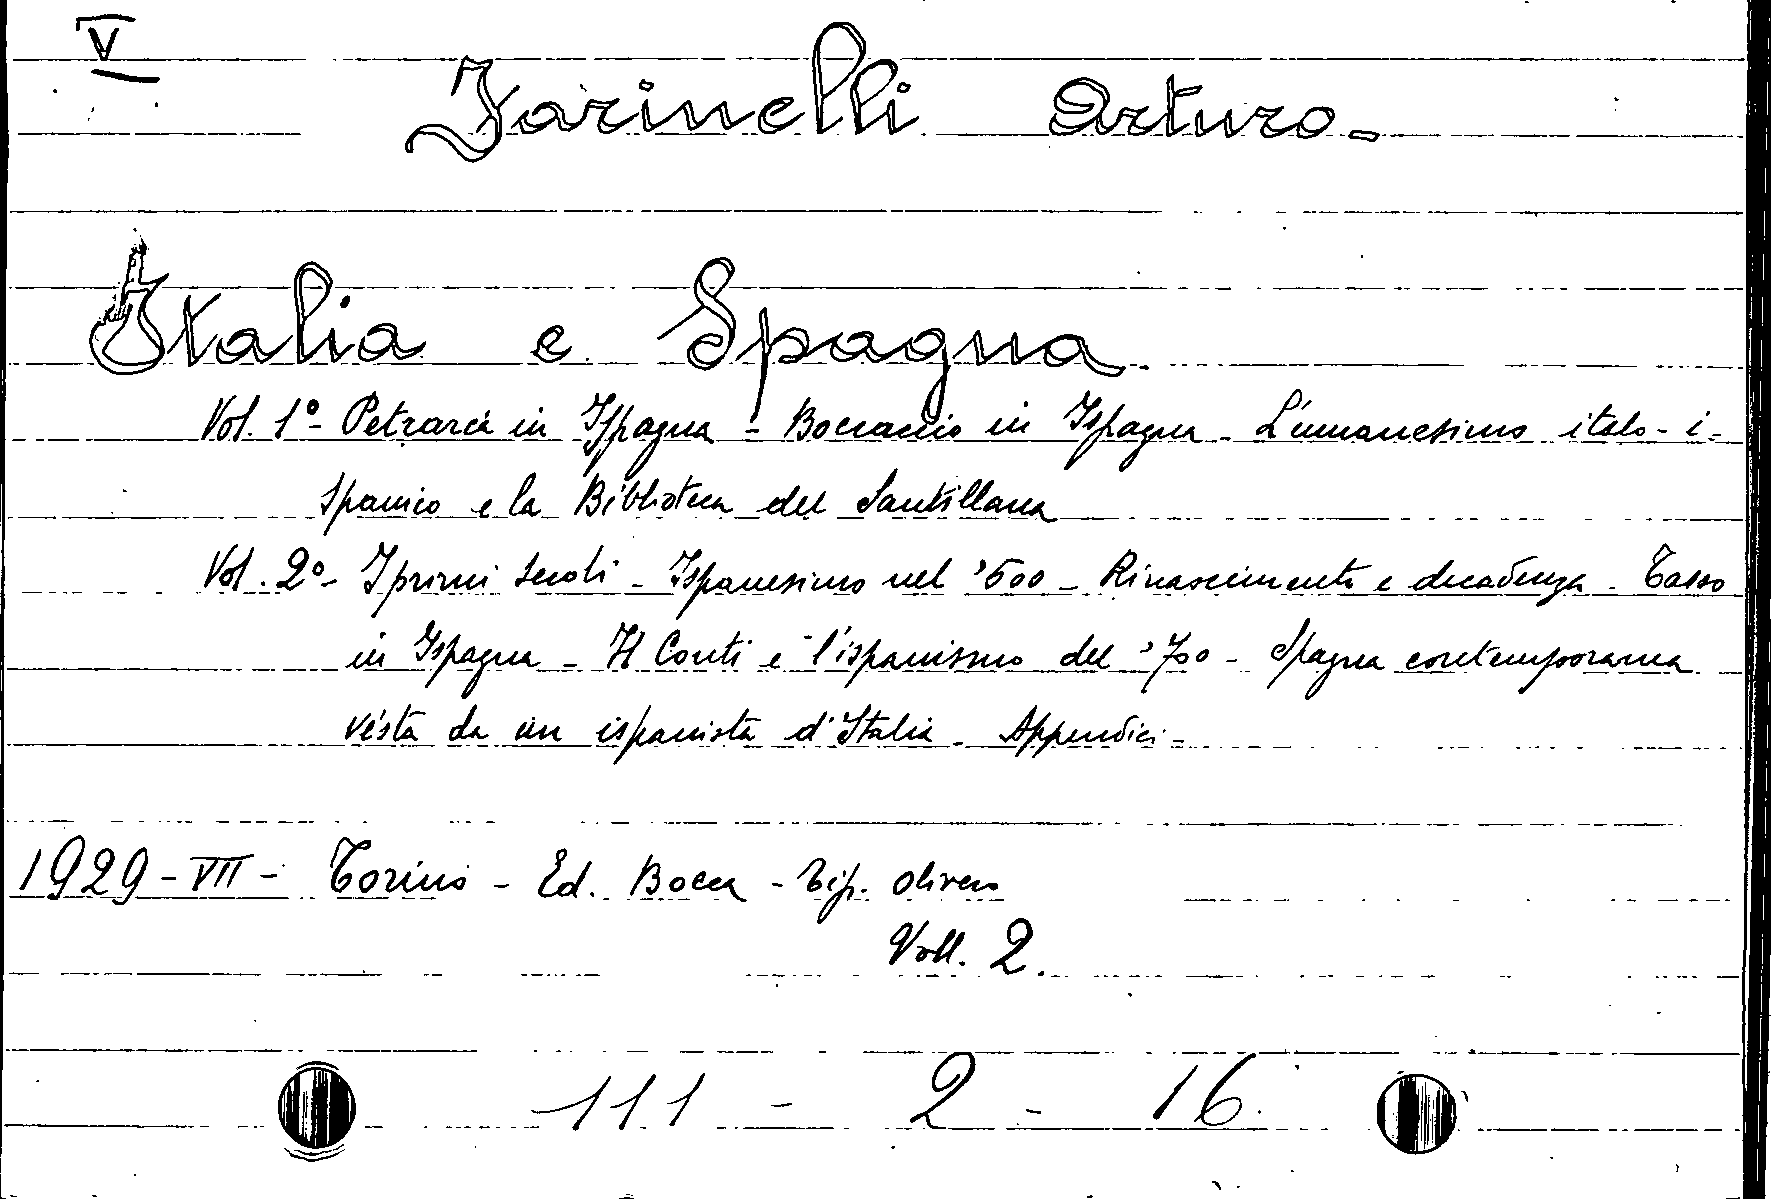 V
Farinelli Arturo.-
Italia e Spagna.
Vol. 1º- Petrarca in Ispagna - Boccaccio in Ispagna - L'umanesimo italo-i-
spanico e la Biblioteca del Santillana
Vol. 2º- I primi secoli - Ispanesimo nel '500 - Rinascimento e decadenza - Tasso
in Ispagna - Il Conti e l'ispanismo del '700 - Spagna contemporanea
vista da un ispanista d'Italia - Appendici -
1929 - VII - Torino - Ed. Bocca - Tip. Olivero
Voll. 2.
111 - 2 - 16